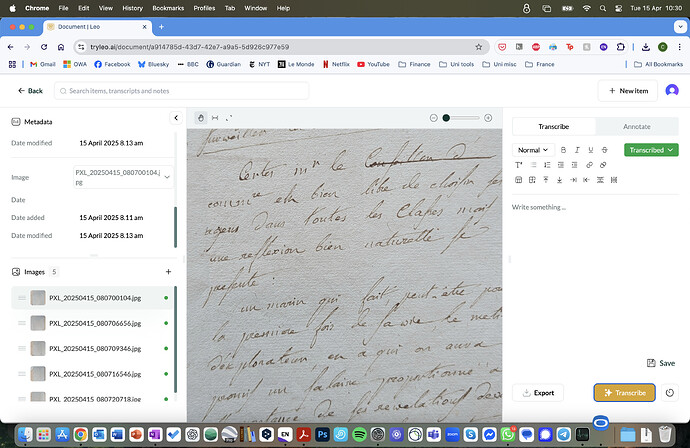 Chrome File Edit View History Bookmarks Profiles Tab Window Help
Tue 15 Apr 10:30
Document | Leo
tryleo.ai/document/a914785d-43d7-42e7-a9a5-5d926c977e59
Gmail OWA Facebook Bluesky BBC Guardian NYT Le Monde Netflix YouTube Finance Uni tools Uni misc France All Bookmarks
Back
Search items, transcripts and notes
New item
Metadata
Date modified 15 April 2025 8.13 am
Image PXL_20250415_080700104.j PE
Date
Date added 15 April 2025 8.11 am
Date modified 15 April 2025 8.13 am
Images 5
PXL_20250415_080700104.jpg
PXL_20250415_080706656.jpg
PXL_20250415_080709346.jpg
PXL_20250415_080716546.jpg
PXL_20250415_080720718.jpg
travailler
Certes mr le
comme est bien libre de choisir ses
agens dans toutes les Classes mais
une reflexion bien naturelle se
presente.
un marin qui fait, peut-être pour
la premiere fois de sa vie, le meti
d'explorateur, en a qui on aura
promit un salaire proportionné a
de ses revelations
Transcribe Annotate
Normal
Transcribed
Write something ...
Save
Export
Transcribe